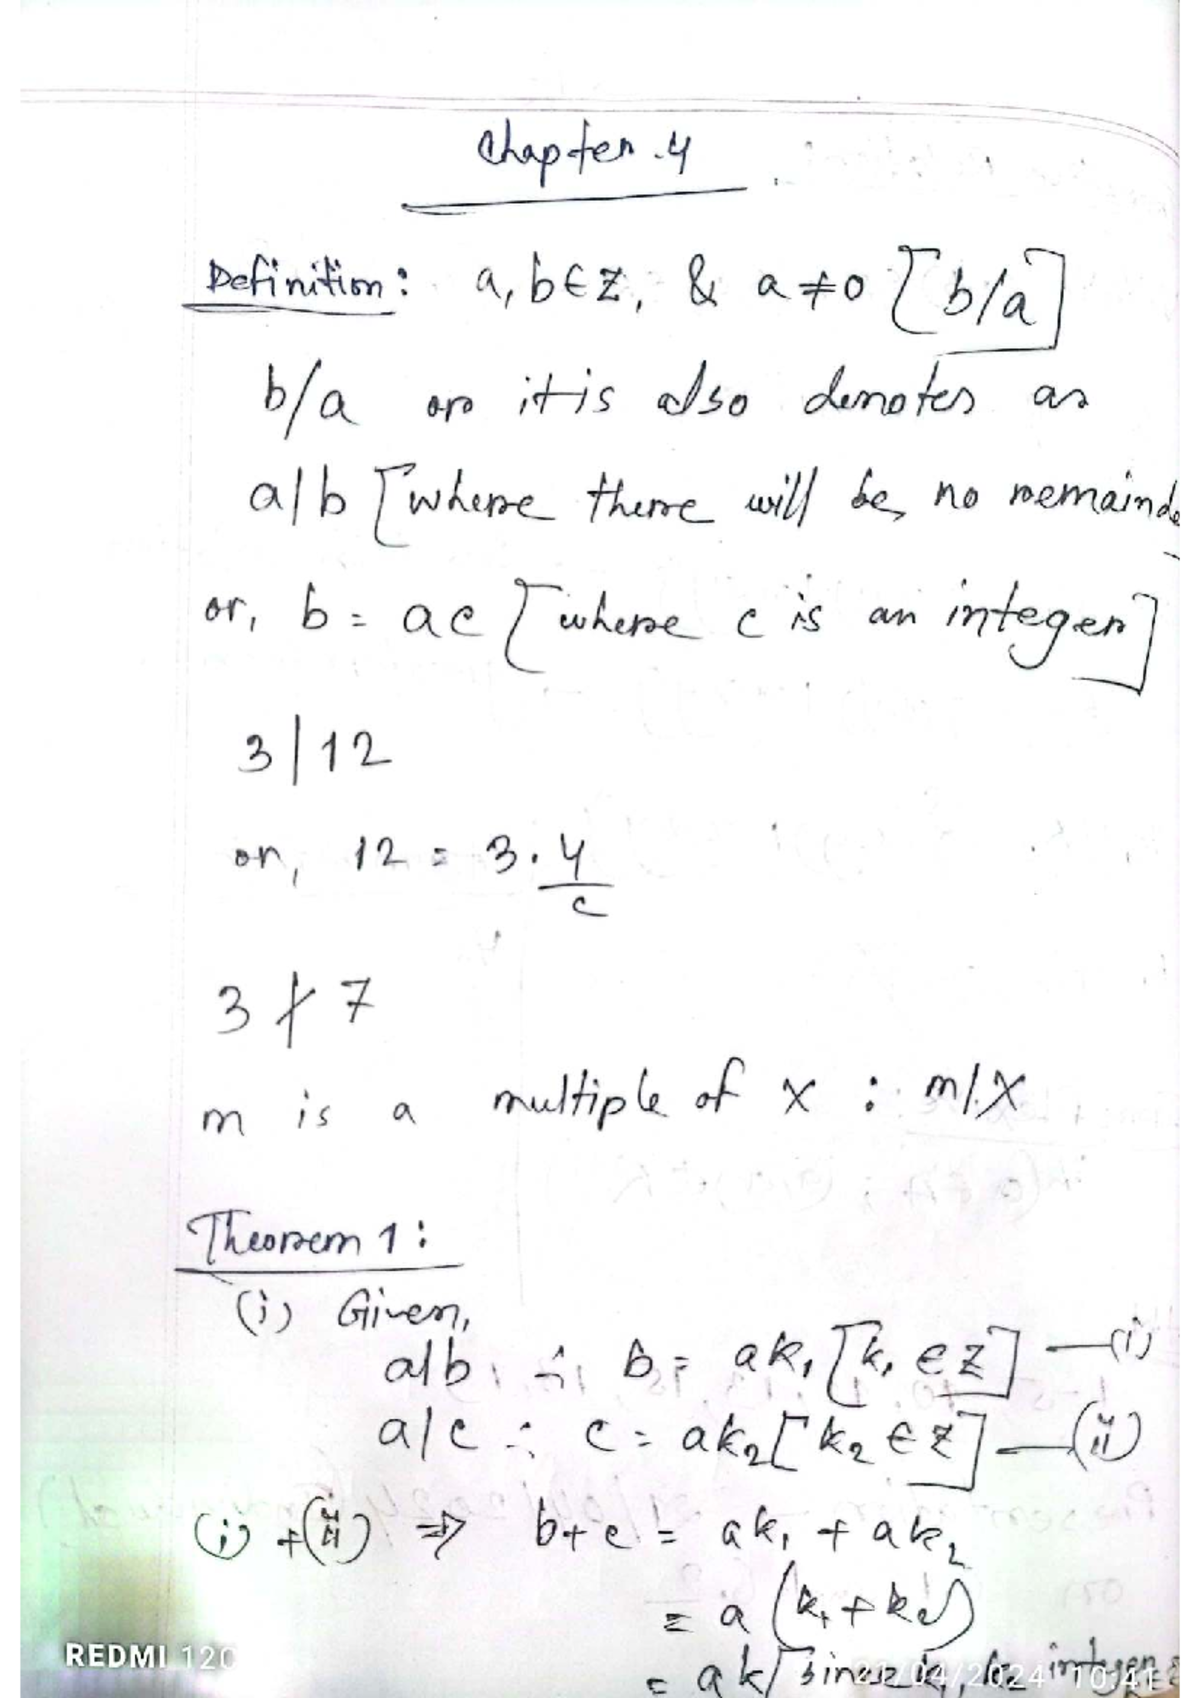 Chapter.4
Definition: a, b ∈ Z, & a ≠ 0 [b/a]
b/a or it is also denotes as
a|b [where there will be no remainde
or, b = ac [where c is an integer]
3|12
or, 12 = 3.4
c
3 ∤ 7
m is a multiple of x : m/x
Theorem 1:
(i) Given,
a|b, ∴ b = ak₁ [k₁ ∈ Z] —(i)
a|c ∴ c = ak₂ [k₂ ∈ Z] —(ii)
(i) + (ii) ⇒ b+c = ak₁ + ak₂
= a (k₁ + k₂)
= ak [since k₁, k₂ integer
REDMI 12C
21/04/2024 10:41